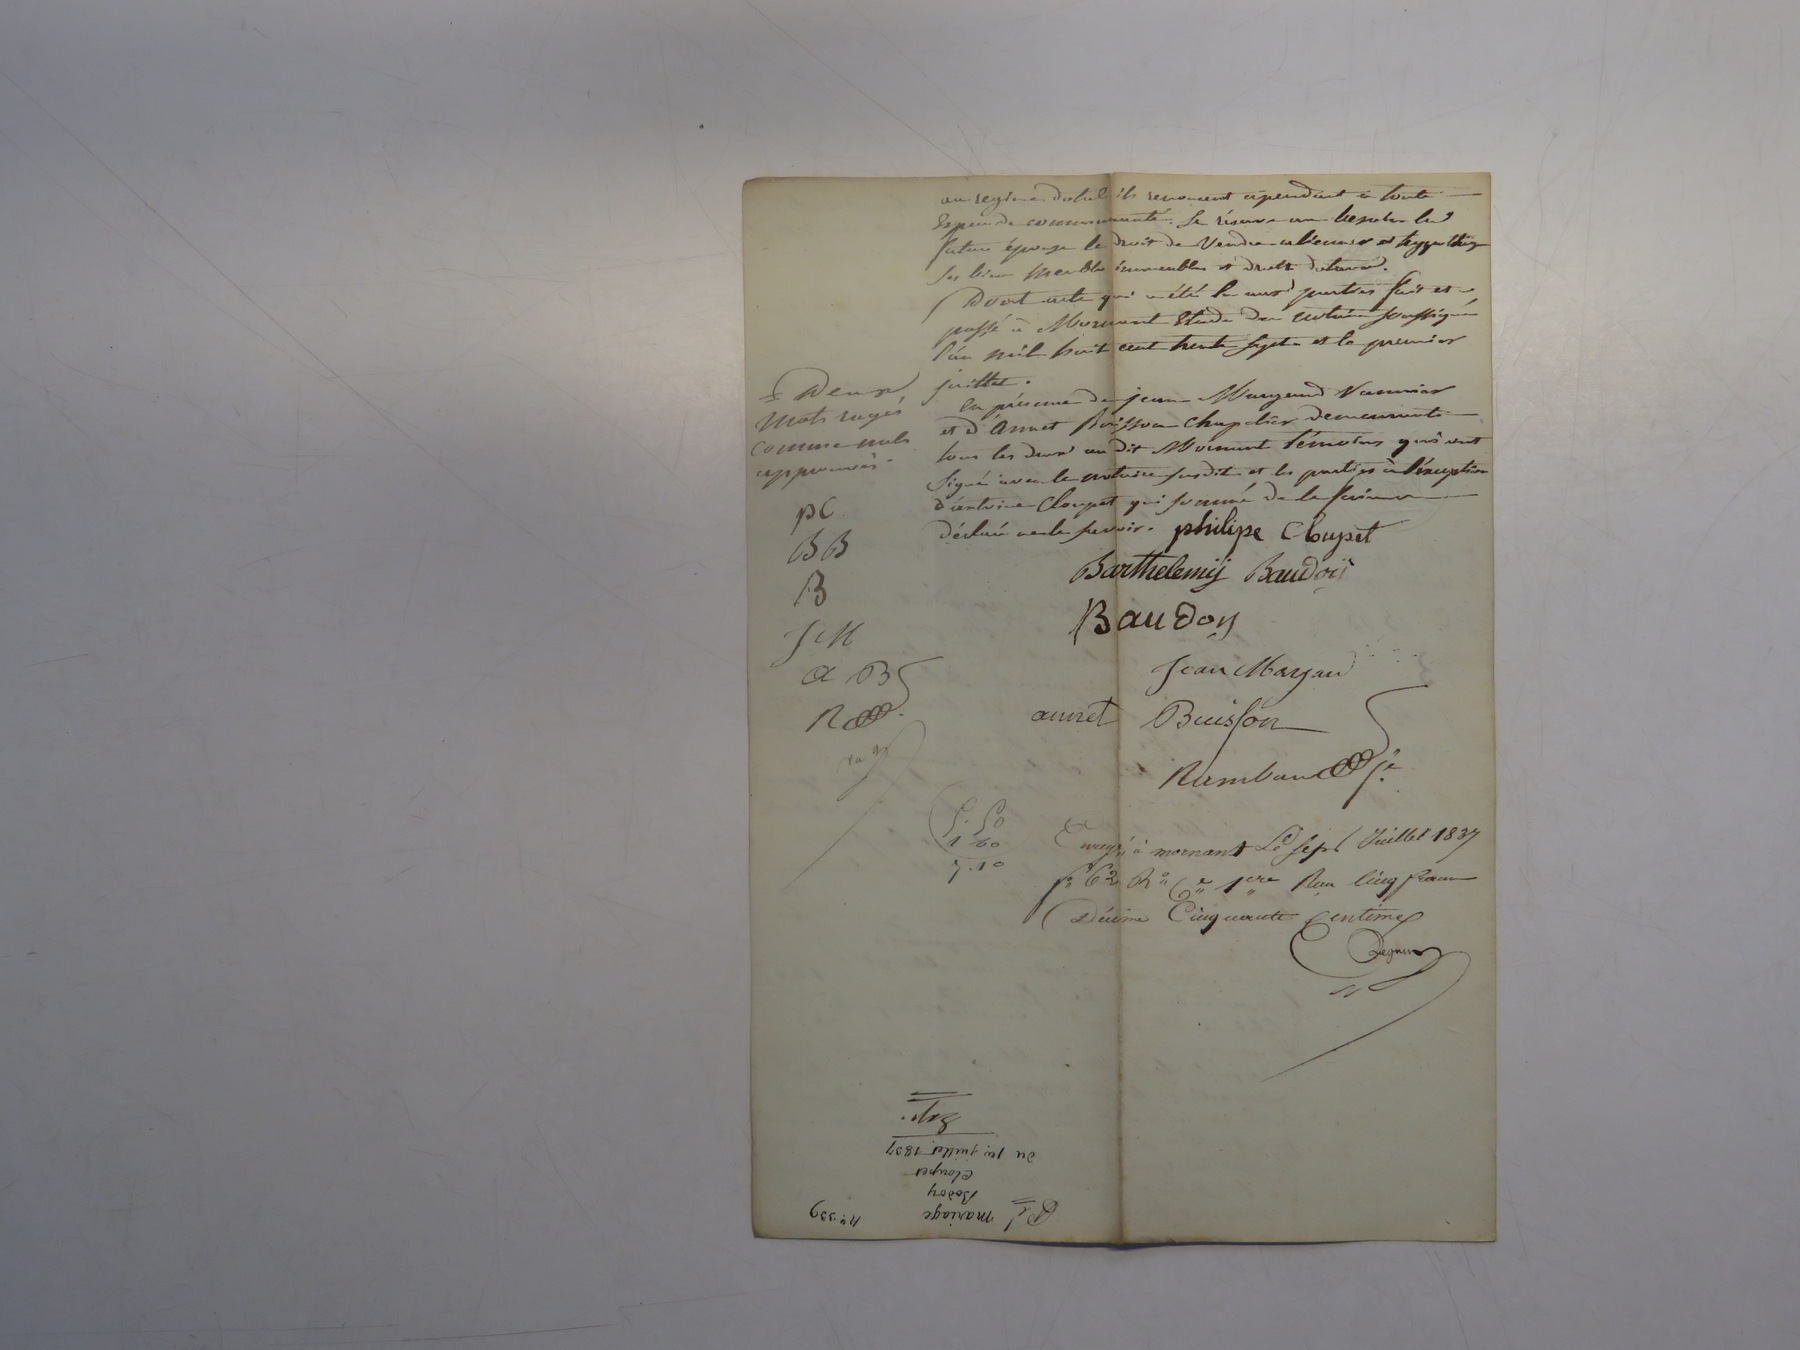 au regime dotal ils renoncent cependant à toute
Espece de communauté. Se réserve au besoin la
future épouse le droit de vendre aliener et hyppothéq
ses bien meuble immeubles et droits dotaux.
Dont acte qui a été lu aux parties fait et
passé à Mornant Etude du notaire soussigné
l'an mil huit cent trente sept et le premier
juillet.
En présence de jean Maryaud Vannier
et d'Annet Buisson chapelier demeurants
tous les deux au dit Mornant témoins qui ont
signé avec le notaire susdit et les parties à l'exception
d'antoine Cloupet qui sommé de le faire
déclaré ne le savoir.
philipe Cloupet
Barthelemij Baudoij
Baudoij
Jean Maryau
annet Buisson
Rambau
Deux
mots rayés
comme nuls
approuvés.
pC
BB
B
JcM
a B
R
5. 50
1 60
7. 10
Enregé à mornant Le sept Juillet 1837
fo 62 Ro Ce 1ere Reçu Cinq francs
Décime Cinquante Centimes
No. 339
Pt
mariage
Bodoy
Cloupet
du 1er juillet 1837
Exp.